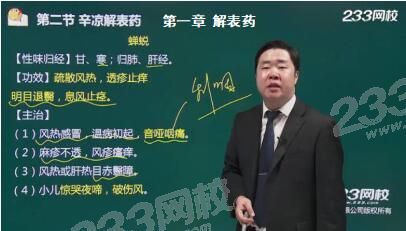 第二节 辛凉解表药
第一章 解表药
233网校
蝉蜕
【性味归经】甘、寒；归肺、肝经。
【功效】疏散风热，透疹止痒
明目退翳，息风止痉。
【主治】
（1）风热感冒，温病初起，音哑咽痛。
（2）麻疹不透，风疹瘙痒。
（3）风热或肝热目赤翳障。
（4）小儿惊哭夜啼，破伤风。
233网校
233网校
限公司版权所有